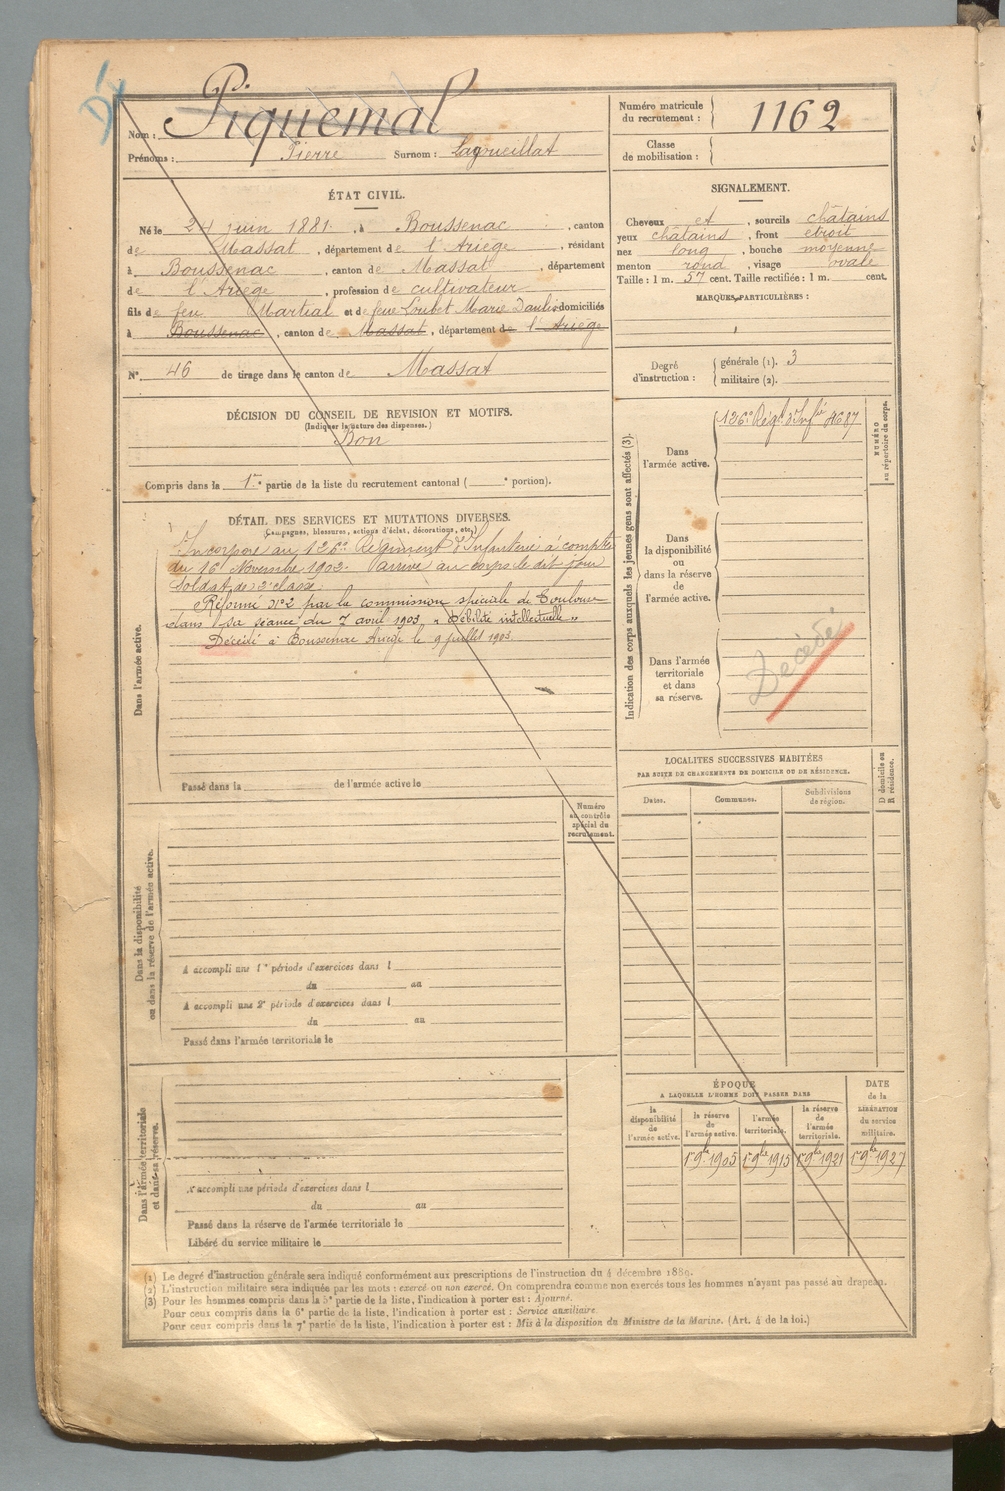 Dx
Nom : Piquemal
Prénoms : Pierre Surnom : Lagoueillat
Numéro matricule du recrutement : 1162
Classe de mobilisation :
ÉTAT CIVIL.
Né le 24 juin 1881, à Boussenac, canton
de Massat, département de l'Ariège, résidant
à Boussenac, canton de Massat, département
de l'Ariège, profession de cultivateur
fils de feu Martial et de feue Loubet Marie domiciliés
à Boussenac, canton de Massat, département de l'Ariège
N° 46 de tirage dans le canton de Massat
SIGNALEMENT.
Cheveux et, sourcils châtains
yeux châtains, front etroit
nez long, bouche moyenne
menton rond, visage ovale
Taille : 1 m. 57 cent. Taille rectifiée : 1 m. cent.
MARQUES PARTICULIÈRES :
Degré d'instruction :
générale (1). 3
militaire (2).
DÉCISION DU CONSEIL DE REVISION ET MOTIFS.
(Indiquer la nature des dispenses.)
Bon
Compris dans la 1re partie de la liste du recrutement cantonal ( e portion).
DÉTAIL DES SERVICES ET MUTATIONS DIVERSES.
(Campagnes, blessures, actions d'éclat, décorations, etc.)
Dans l'armée active.
Incorporé au 126e Régiment d'Infanterie à compter
du 16 Novembre 1902. Arrivé au corps le dit jour
Soldat de 2e classe
Réformé n°2 par la commission spéciale de Toulouse
dans sa séance du 7 avril 1903 « Débilité intellectuelle »
Décédé à Boussenac Ariège le 9 juillet 1903.
Passé dans la de l'armée active le
Indication des corps auxquels les jeunes gens sont affectés (3).
NUMÉRO au répertoire du corps.
Dans l'armée active.
126e Régt d'Infie 4687
Dans la disponibilité ou dans la réserve de l'armée active.
Dans l'armée territoriale et dans sa réserve.
Décédé
LOCALITÉS SUCCESSIVES HABITÉES
PAR SUITE DE CHANGEMENTS DE DOMICILE OU DE RÉSIDENCE.
Dates. Communes. Subdivisions de région. D domicile ou R résidence.
Dans la disponibilité ou dans la réserve de l'armée active.
Numéro au contrôle spécial du recrutement.
A accompli une 1re période d'exercices dans l
du au
A accompli une 2e période d'exercices dans l
du au
Passé dans l'armée territoriale le
Dans l'armée territoriale et dans sa réserve.
A accompli une période d'exercices dans l
du au
Passé dans la réserve de l'armée territoriale le
Libéré du service militaire le
ÉPOQUE
A LAQUELLE L'HOMME DOIT PASSER DANS
la disponibilité de l'armée active.
la réserve de l'armée active.
l'armée territoriale.
la réserve de l'armée territoriale.
DATE de la LIBÉRATION du service militaire.
1er 9bre 1905 1er 9bre 1915 1er 9bre 1921 1er 9bre 1927
(1) Le degré d'instruction générale sera indiqué conformément aux prescriptions de l'instruction du 4 décembre 1889.
(2) L'instruction militaire sera indiquée par les mots : exercé ou non exercé. On comprendra comme non exercés tous les hommes n'ayant pas passé au drapeau.
(3) Pour les hommes compris dans la 5e partie de la liste, l'indication à porter est : Ajourné.
Pour ceux compris dans la 6e partie de la liste, l'indication à porter est : Service auxiliaire.
Pour ceux compris dans la 7e partie de la liste, l'indication à porter est : Mis à la disposition du Ministre de la Marine. (Art. 4 de la loi.)